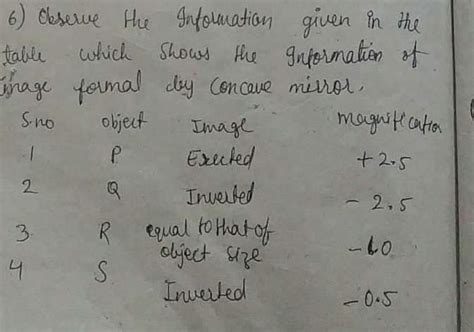 6) Observe the Information given in the
table which shows the Information of
image formal by Concave mirror.
S.no object Image magnification
1 P Erected +2.5
2 Q Inverted -2.5
3. R equal to that of
object size -1.0
4 S.
Inverted -0.5